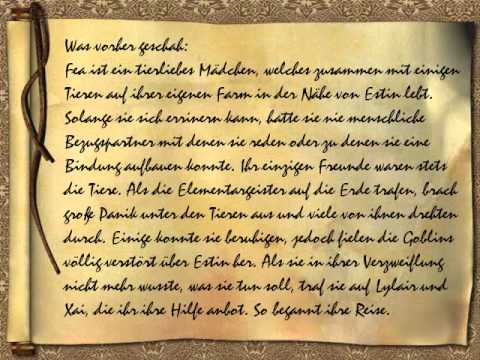 Was vorher geschah:
Fea ist ein tierliebes Mädchen, welches zusammen mit einigen
Tieren auf ihrer eigenen Farm in der Nähe von Estin lebt.
Solange sie sich errinern kann, hatte sie nie menschliche
Bezugspartner mit denen sie reden oder zu denen sie eine
Bindung aufbauen konnte. Ihr einzigen Freunde waren stets
die Tiere. Als die Elementargeister auf die Erde trafen, brach
große Panik unter den Tieren aus und viele von ihnen drehten
durch. Einige konnte sie beruhigen, jedoch fielen die Goblins
völlig verstört über Estin her. Als sie in ihrer Verzweiflung
nicht mehr wusste, was sie tun soll, traf sie auf Lylair und
Xai, die ihr ihre Hilfe anbot. So begannt ihre Reise.